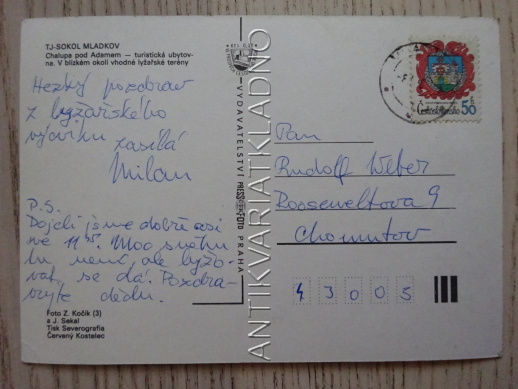 TJ-SOKOL MLADKOV
Chalupa pod Adamem — turistická ubytov-
na. V blízkém okolí vhodné lyžařské terény
Hezký pozdrav
z lyžařského
výcviku zasílá
Milan
P.S.
Dojeli jsme dobře asi
ve 11 45. Moc sněhu
tu není, ale lyžo-
vat se dá. Pozdra-
vujte dědu.
Foto Z. Kočík (3)
a J. Sekal
Tisk Severografia
Červený Kostelec
VYDAVATELSTVÍ PRESSFOTO PRAHA
ANTIKVARIATKLADNO
Československo 50
Pan
Rudolf Weber
Rooseweltova 9
Chomutov
43005